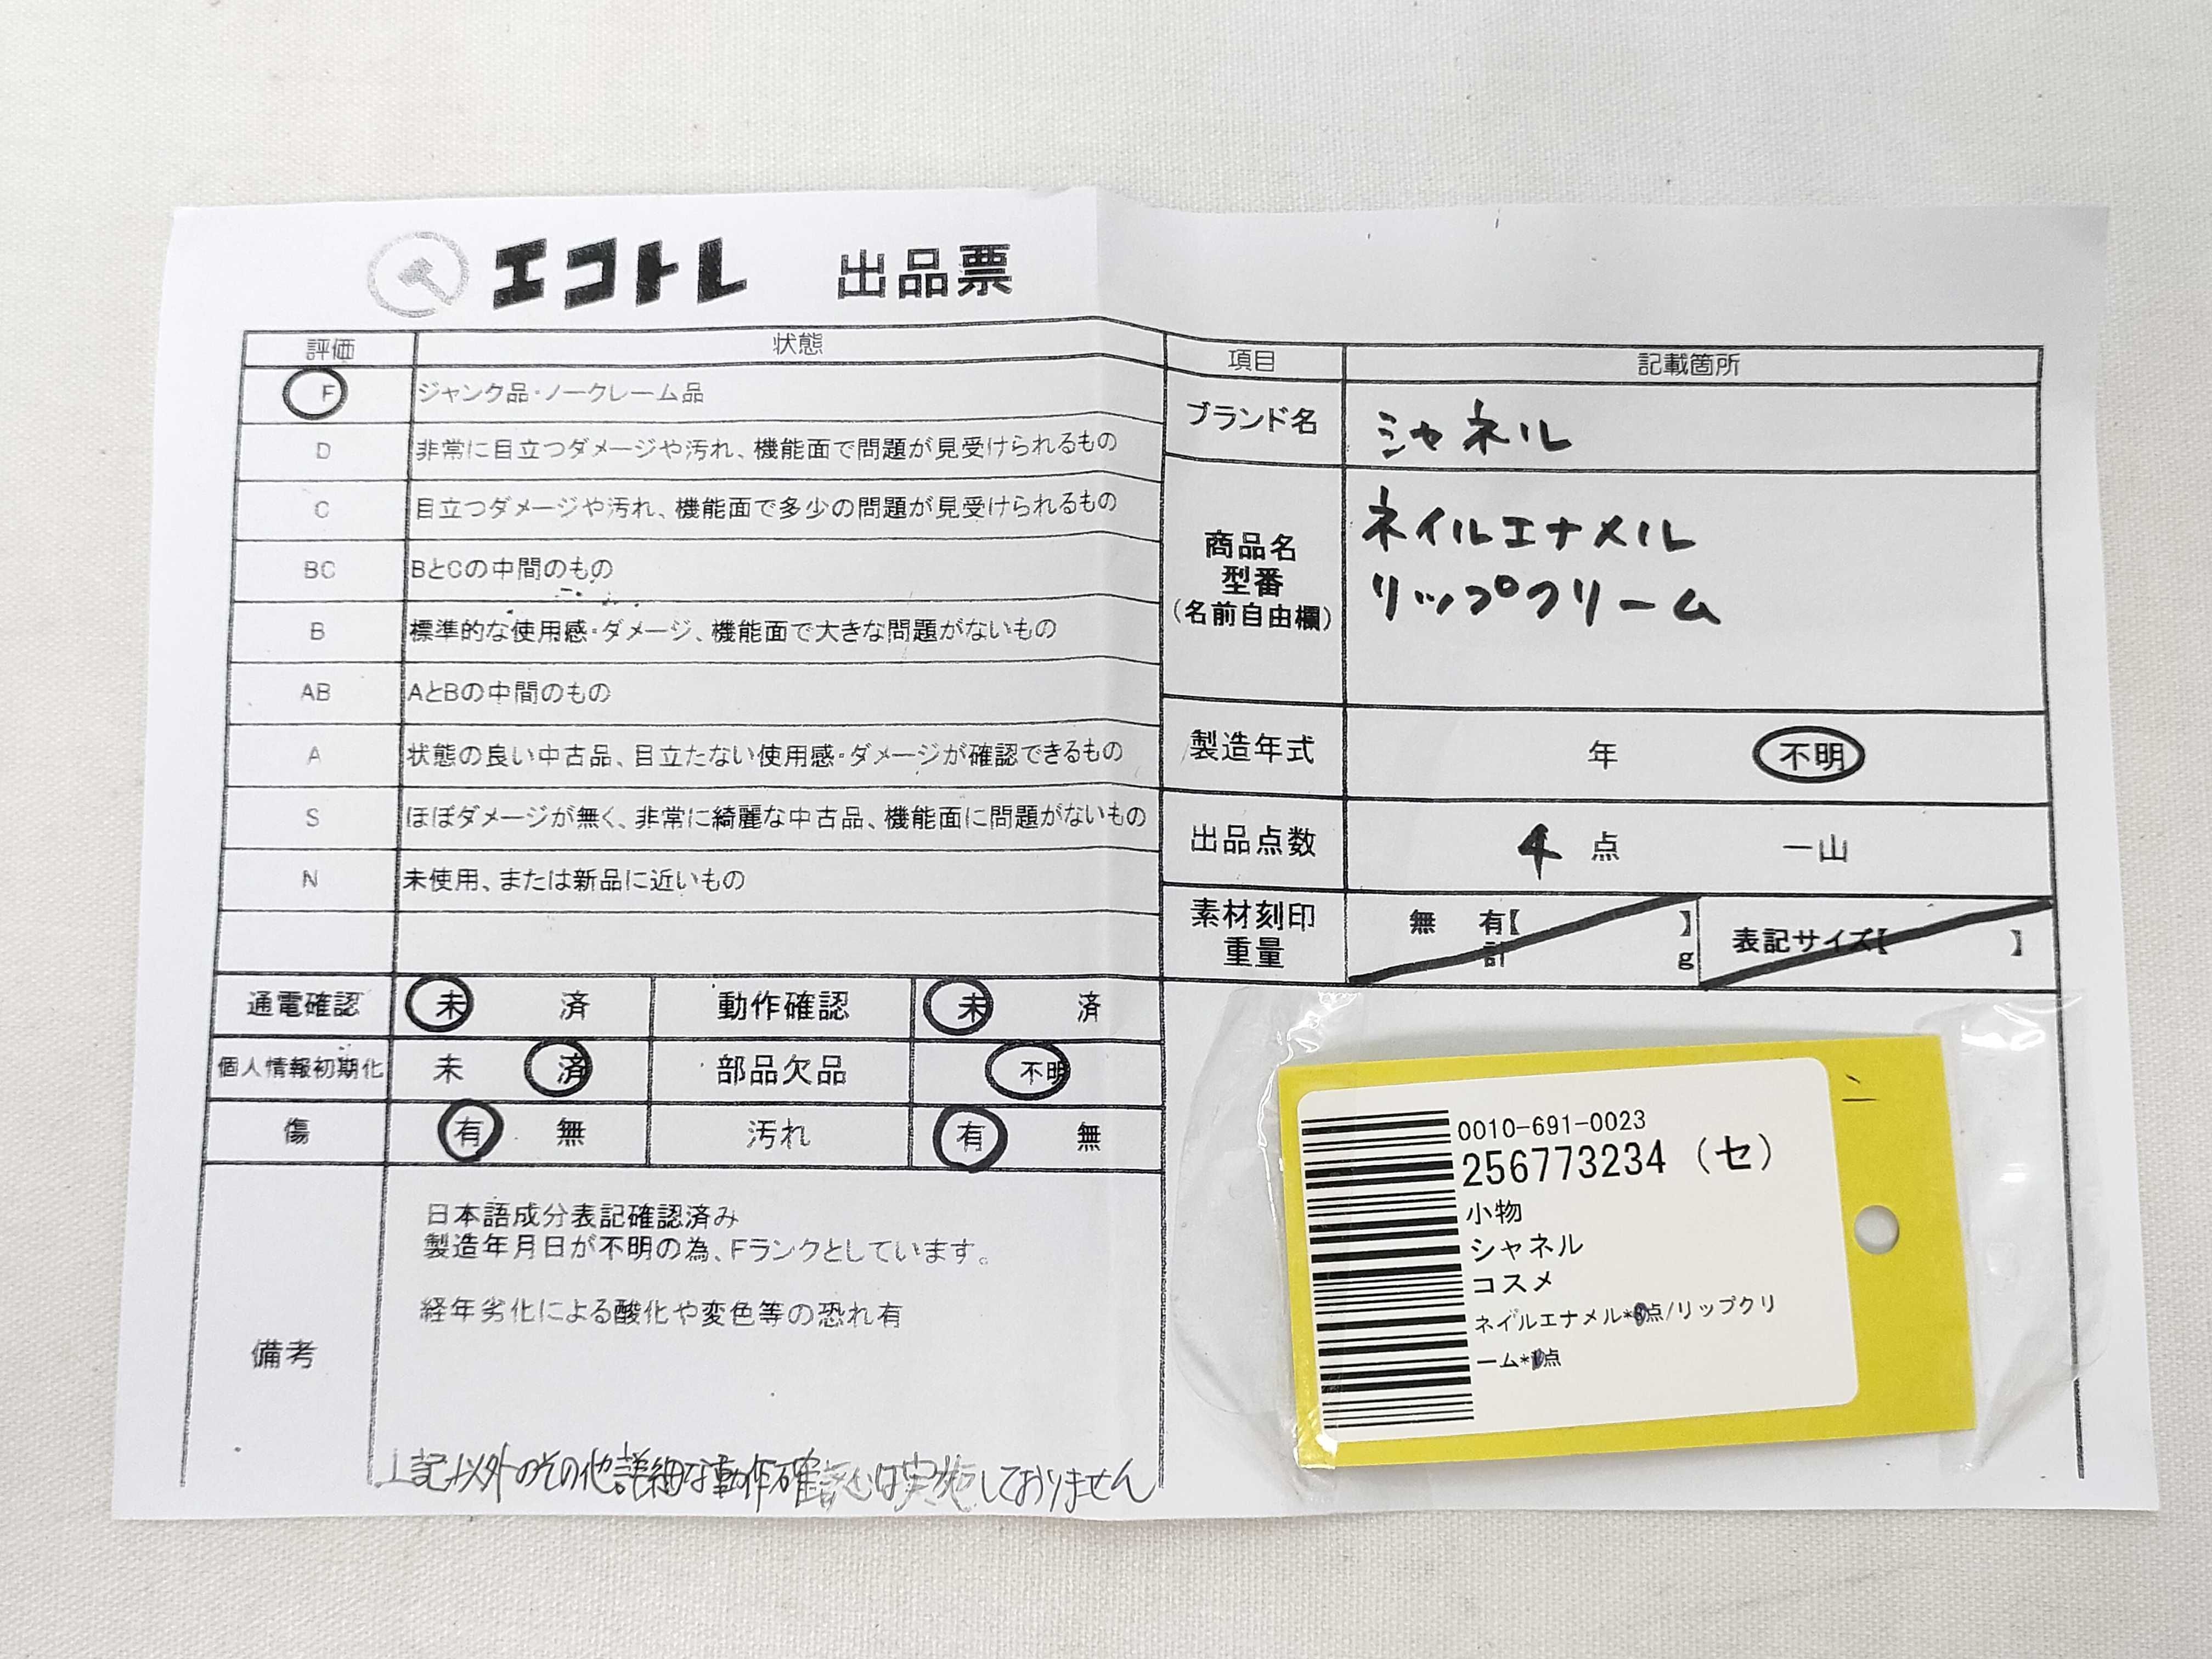 エコトレ 出品票
評価 状態
F ジャンク品・ノークレーム品
D 非常に目立つダメージや汚れ、機能面で問題が見受けられるもの
C 目立つダメージや汚れ、機能面で多少の問題が見受けられるもの
BC BとCの中間のもの
B 標準的な使用感・ダメージ、機能面で大きな問題がないもの
AB AとBの中間のもの
A 状態の良い中古品、目立たない使用感・ダメージが確認できるもの
S ほぼダメージが無く、非常に綺麗な中古品、機能面に問題がないもの
N 未使用、または新品に近いもの
通電確認 未 済 動作確認 未 済
個人情報初期化 未 済 部品欠品 不明
傷 有 無 汚れ 有 無
備考
日本語成分表記確認済み
製造年月日が不明の為、Fランクとしています。
経年劣化による酸化や変色等の恐れ有
上記以外のその他詳細な動作確認は実施しておりません
項目 記載箇所
ブランド名 シャネル
商品名
型番
(名前自由欄)
ネイルエナメル
リップクリーム
製造年式 年 不明
出品点数 4 点 一山
素材刻印
重量
無 有【 】
計 g
表記サイズ【 】
0010-691-0023
256773234 (セ)
小物
シャネル
コスメ
ネイルエナメル*点/リップクリ
ーム*点